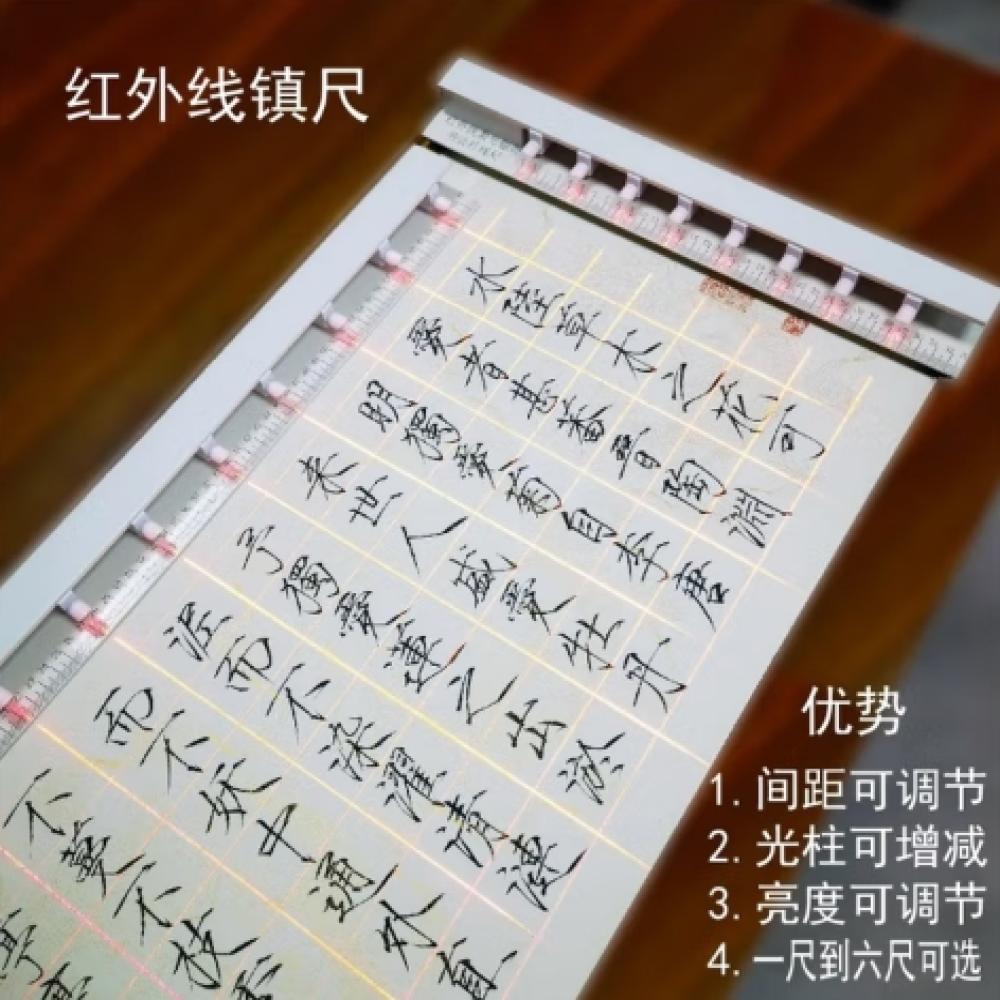 红外线镇尺
水陸草木之花可
愛者甚蕃晉陶淵
明獨愛菊自李唐
来世人盛愛牡丹
予獨愛蓮之出淤
泥而不染濯清漣
而不妖中通外直
不蔓不枝
优势
1. 间距可调节
2. 光柱可增减
3. 亮度可调节
4. 一尺到六尺可选